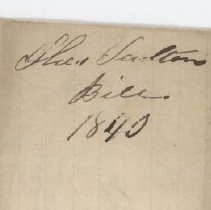 Thos Scolton
Bill
1840